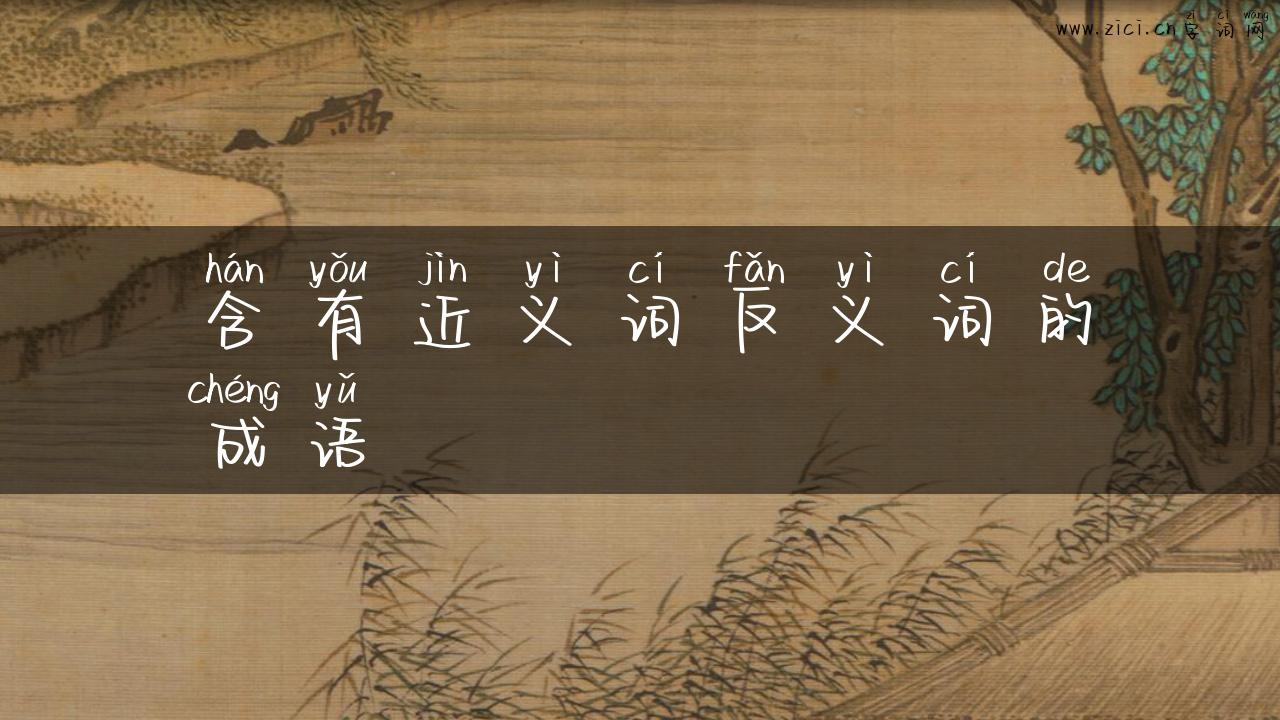 zì cí wǎng
www.zici.cn字词网
hán yǒu jìn yì cí fǎn yì cí de
含有近义词反义词的
chéng yǔ
成语